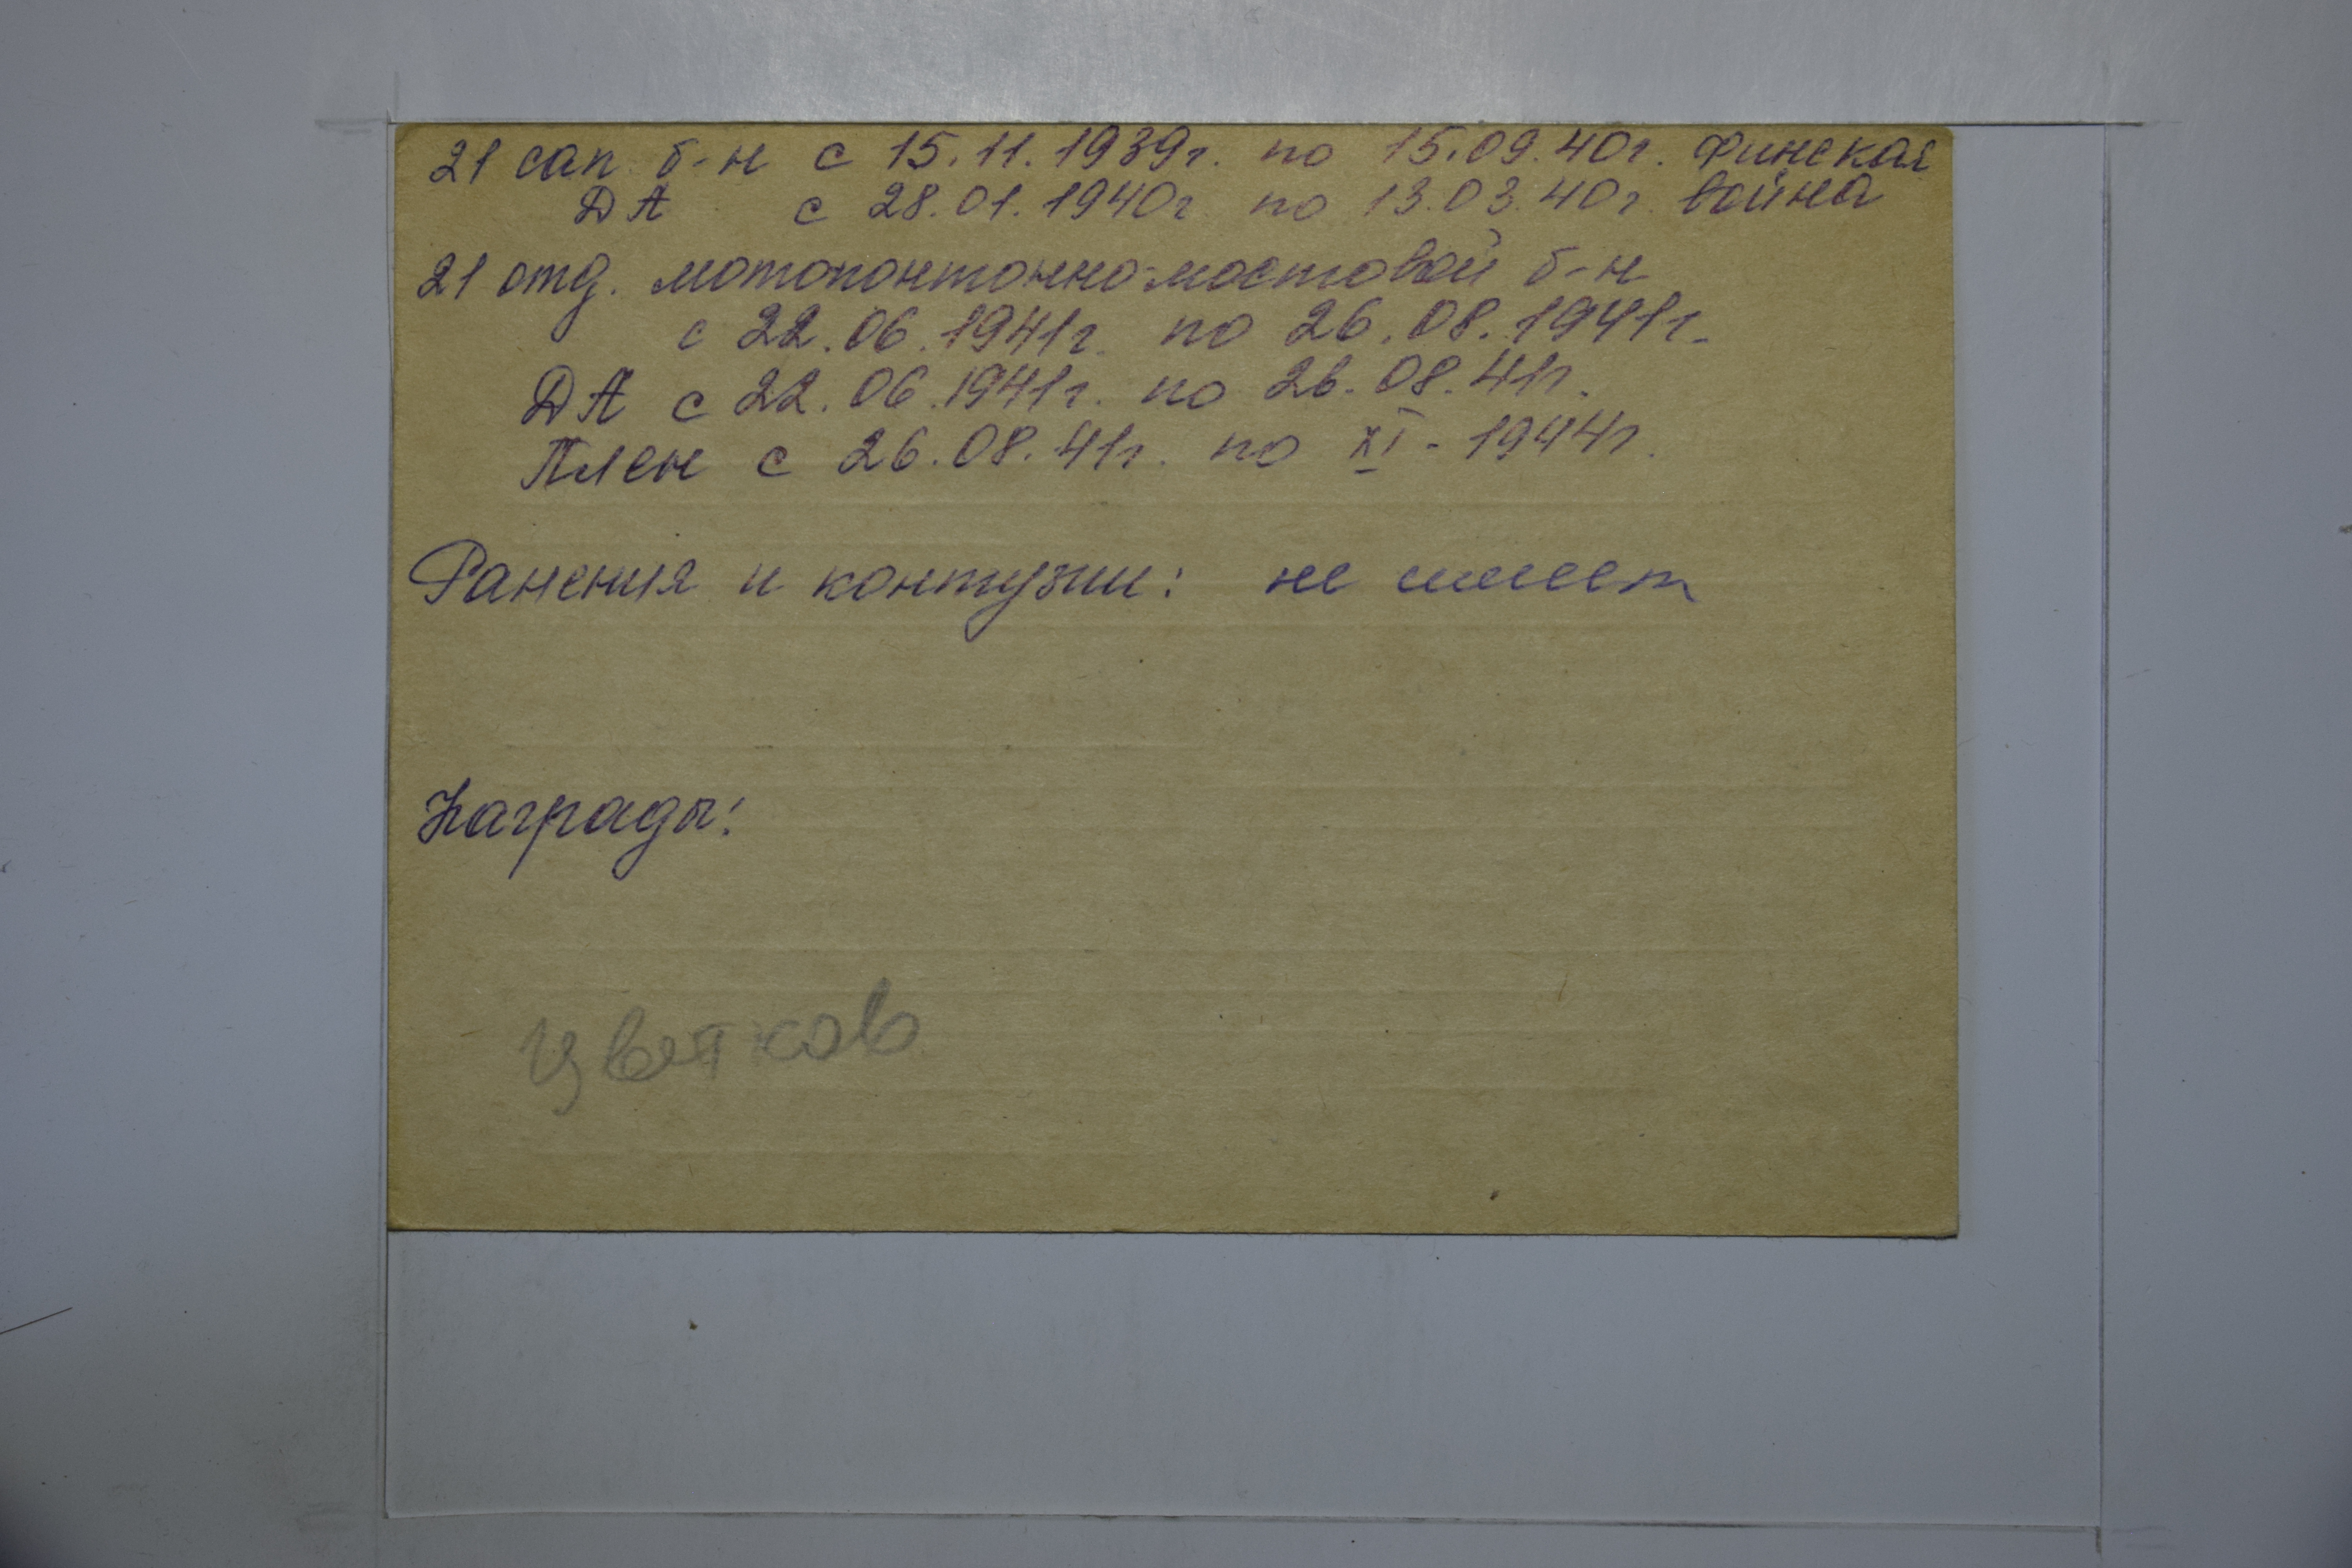 21 сап. б-н с 15.11.1939г. по 15.09.40г. Финская
ДА с 28.01.1940г по 13.03.40г. война
21 отд. мотопонтонно-мостовой б-н
с 22.06.1941г. по 26.08.1941г.
ДА с 22.06.1941г. по 26.08.41г.
Плен с 26.08.41г. по XI - 1944г.
Ранения и контузии: не имеет
Награды:
Цветков